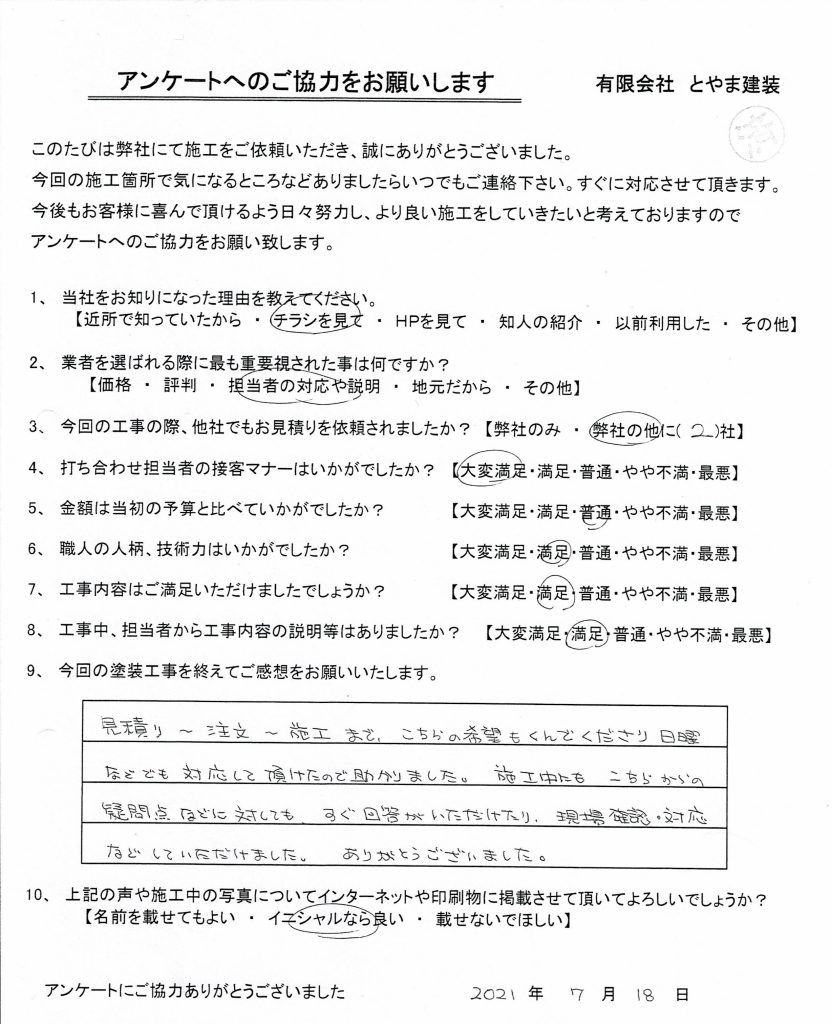 アンケートへのご協力をお願いします
有限会社 とやま建装
済
このたびは弊社にて施工をご依頼いただき、誠にありがとうございました。
今回の施工箇所で気になるところなどありましたらいつでもご連絡下さい。すぐに対応させて頂きます。
今後もお客様に喜んで頂けるよう日々努力し、より良い施工をしていきたいと考えておりますので
アンケートへのご協力をお願い致します。
1、 当社をお知りになった理由を教えてください。
【近所で知っていたから ・ チラシを見て ・ HPを見て ・ 知人の紹介 ・ 以前利用した ・ その他】
2、 業者を選ばれる際に最も重要視された事は何ですか?
【価格 ・ 評判 ・ 担当者の対応や説明 ・ 地元だから ・ その他】
3、 今回の工事の際、他社でもお見積りを依頼されましたか? 【弊社のみ ・ 弊社の他に( 2 )社】
4、 打ち合わせ担当者の接客マナーはいかがでしたか? 【大変満足・満足・普通・やや不満・最悪】
5、 金額は当初の予算と比べていかがでしたか? 【大変満足・満足・普通・やや不満・最悪】
6、 職人の人柄、技術力はいかがでしたか? 【大変満足・満足・普通・やや不満・最悪】
7、 工事内容はご満足いただけましたでしょうか? 【大変満足・満足・普通・やや不満・最悪】
8、 工事中、担当者から工事内容の説明等はありましたか? 【大変満足・満足・普通・やや不満・最悪】
9、 今回の塗装工事を終えてご感想をお願いいたします。
見積り ~ 注文 ~ 施工 まで、こちらの希望もくんでくださり 日曜
などでも 対応して頂けたので助かりました。 施工中にも こちらからの
疑問点などに対しても、すぐ回答がいただけたり、現場確認・対応
などしていただけました。 ありがとうございました。
10、 上記の声や施工中の写真についてインターネットや印刷物に掲載させて頂いてよろしいでしょうか?
【名前を載せてもよい ・ イニシャルなら良い ・ 載せないでほしい】
アンケートにご協力ありがとうございました
2021 年 7 月 18 日